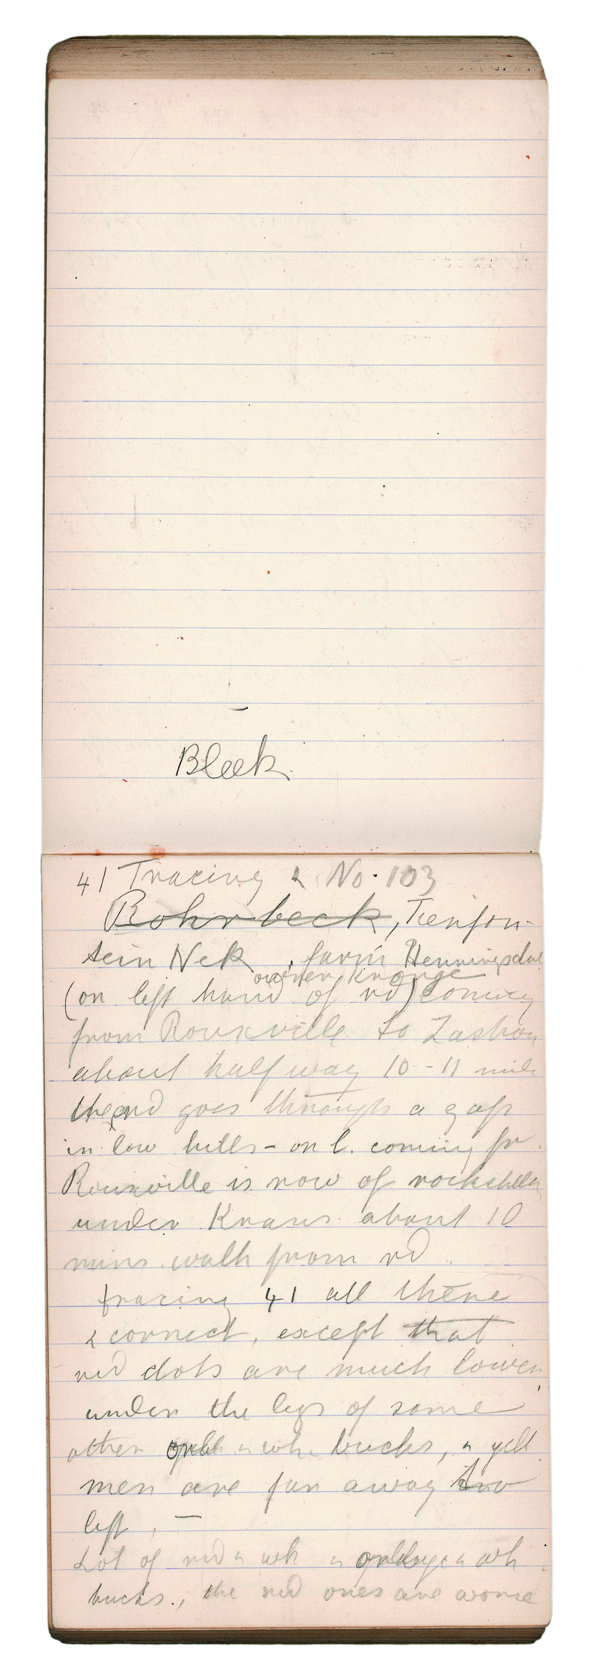 Bleek.
41 Tracing & No. 103
Rohrbeck, Tienfon-
tein Nek, farm Henningsdal
owner Kronge
(on left hand of rd) coming
from Rouxville to Zastron
about half way 10-11 mile
the rd goes through a gap
in low hills - on l. coming fr.
Rouxville is row of
under Krans. about 10
mins walk from rd.
tracing 41 all there
& correct, except that
red dots are much lower
under the legs of some
other & wh. bucks, & yell
men are far away
left, —
Lot of red & wh & & wh
bucks., the red ones are worse